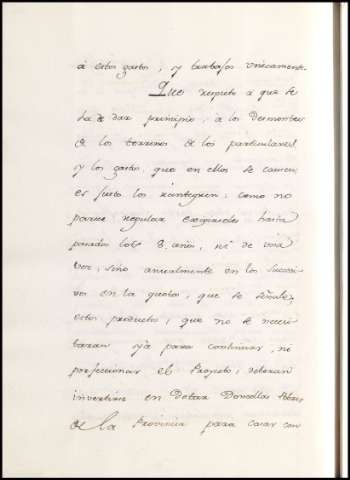 á estos gastos, y trabajos unicamente.
Que respeto a que se
ha de dar principio, a los Desmontes
de los terrenos de los particulares
y los gastos, que en ellos se causen,
es justo los reintegren, como no
parece regular exigirselos hasta
pasados los 8. años, ni de una
vez, sino anualmente en los succesi-
vos en la quota, que se señale;
estos productos, que no se necesi-
taran ya para continuar, ni
perfeccionar el Proyecto, deberan
invertirse en Dotar Doncellas Pobres
de la Provincia para casar con